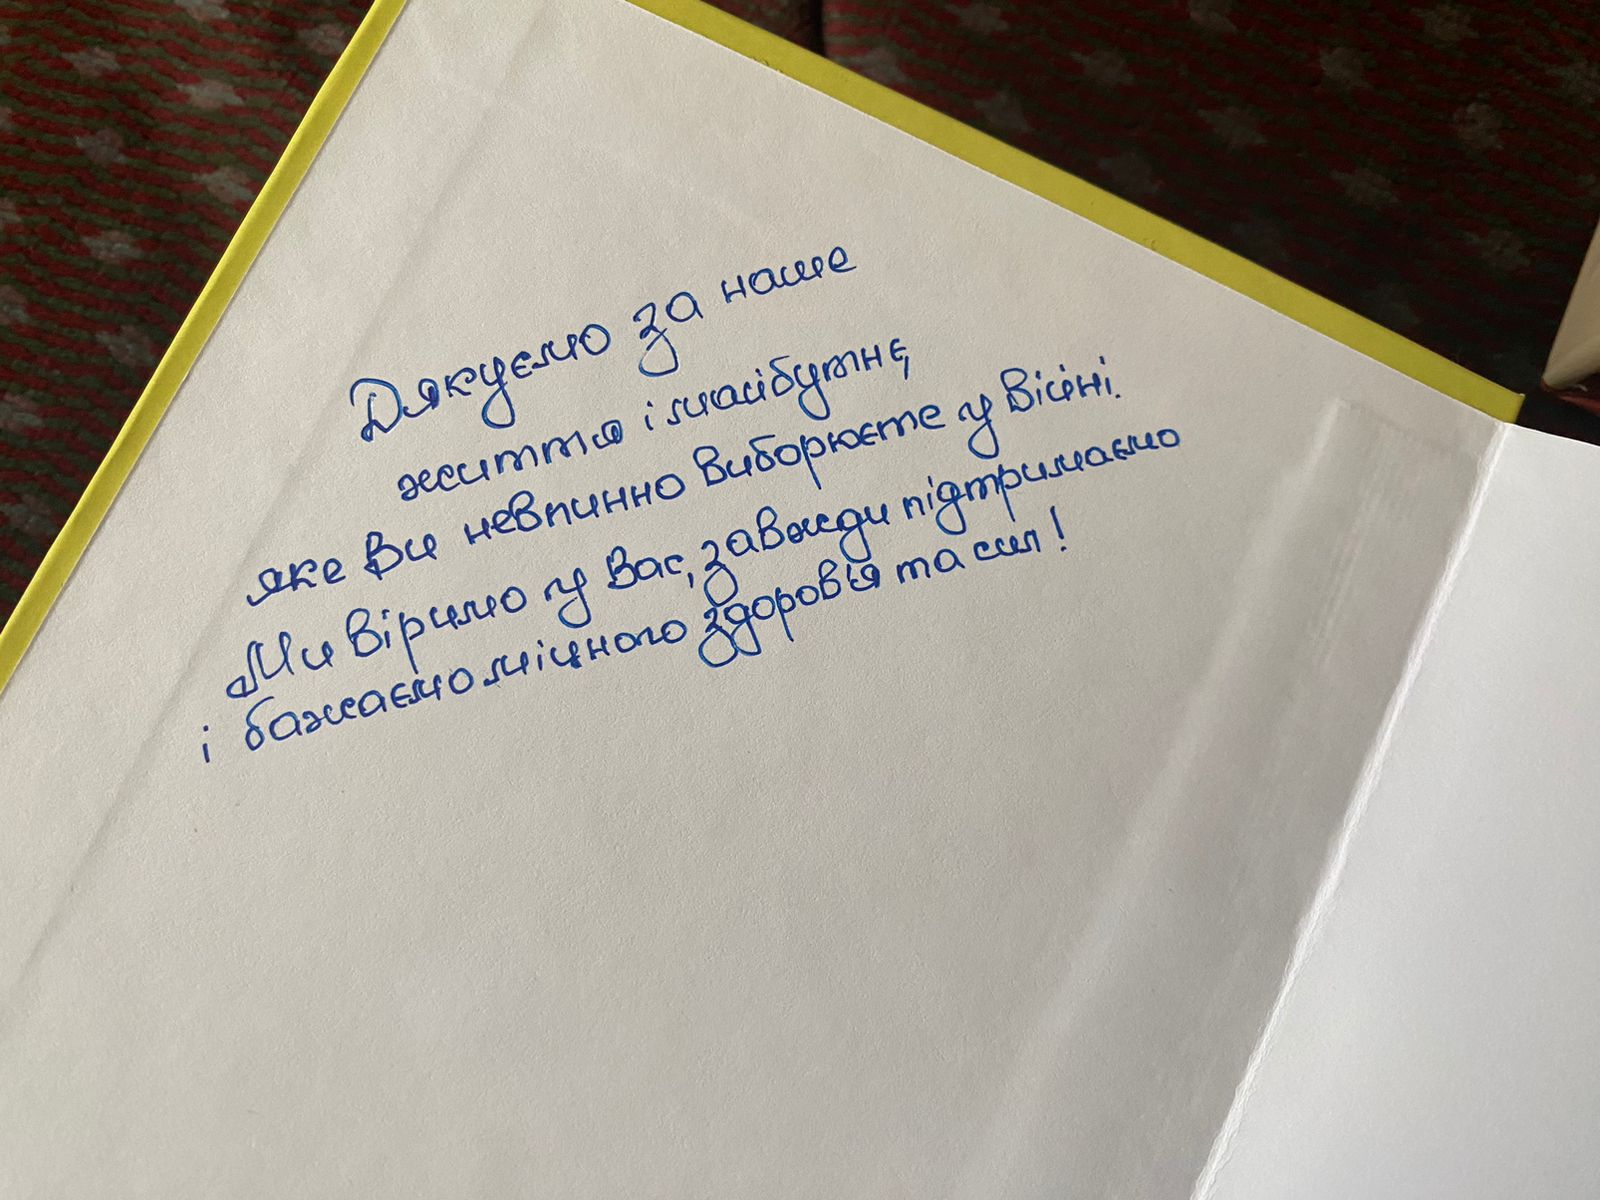 Дякуємо за наше
життя і майбутнє,
яке Ви невпинно виборюєте у Війні.
Ми віримо у Вас, завжди підтримаємо
і бажаємо міцного здоров'я та сил!